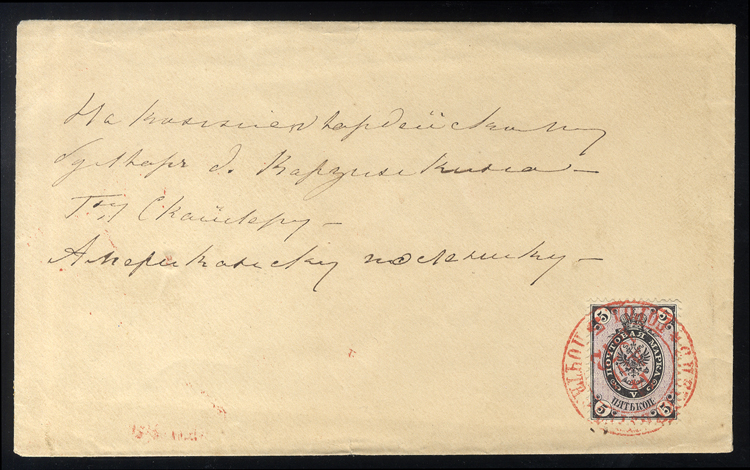 На Конногвардейскому
бульвару д. Карзинкина
Г-ну Скайлеру
Американскому посланнику
5 5
ПОЧТОВАЯ МАРКА
V
ПЯТЬ КОП
5 5